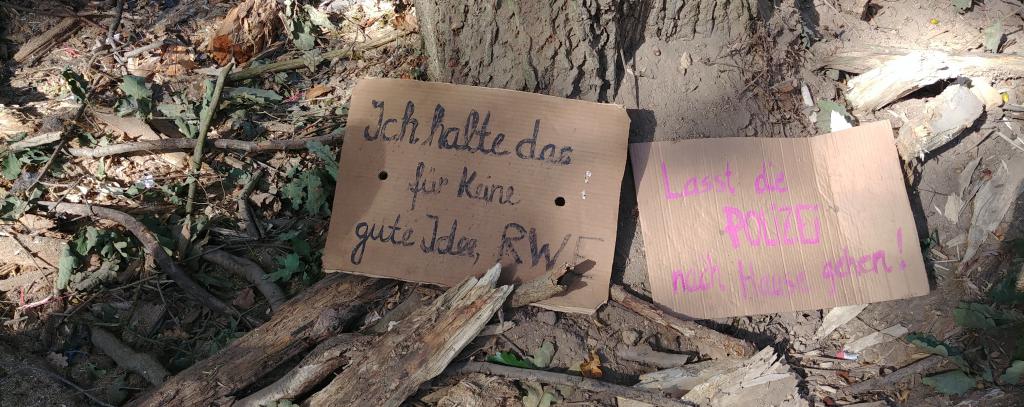 Ich halte das
für Keine
gute Idee, RWE
Lasst die
POLIZEI
nach Hause gehen!